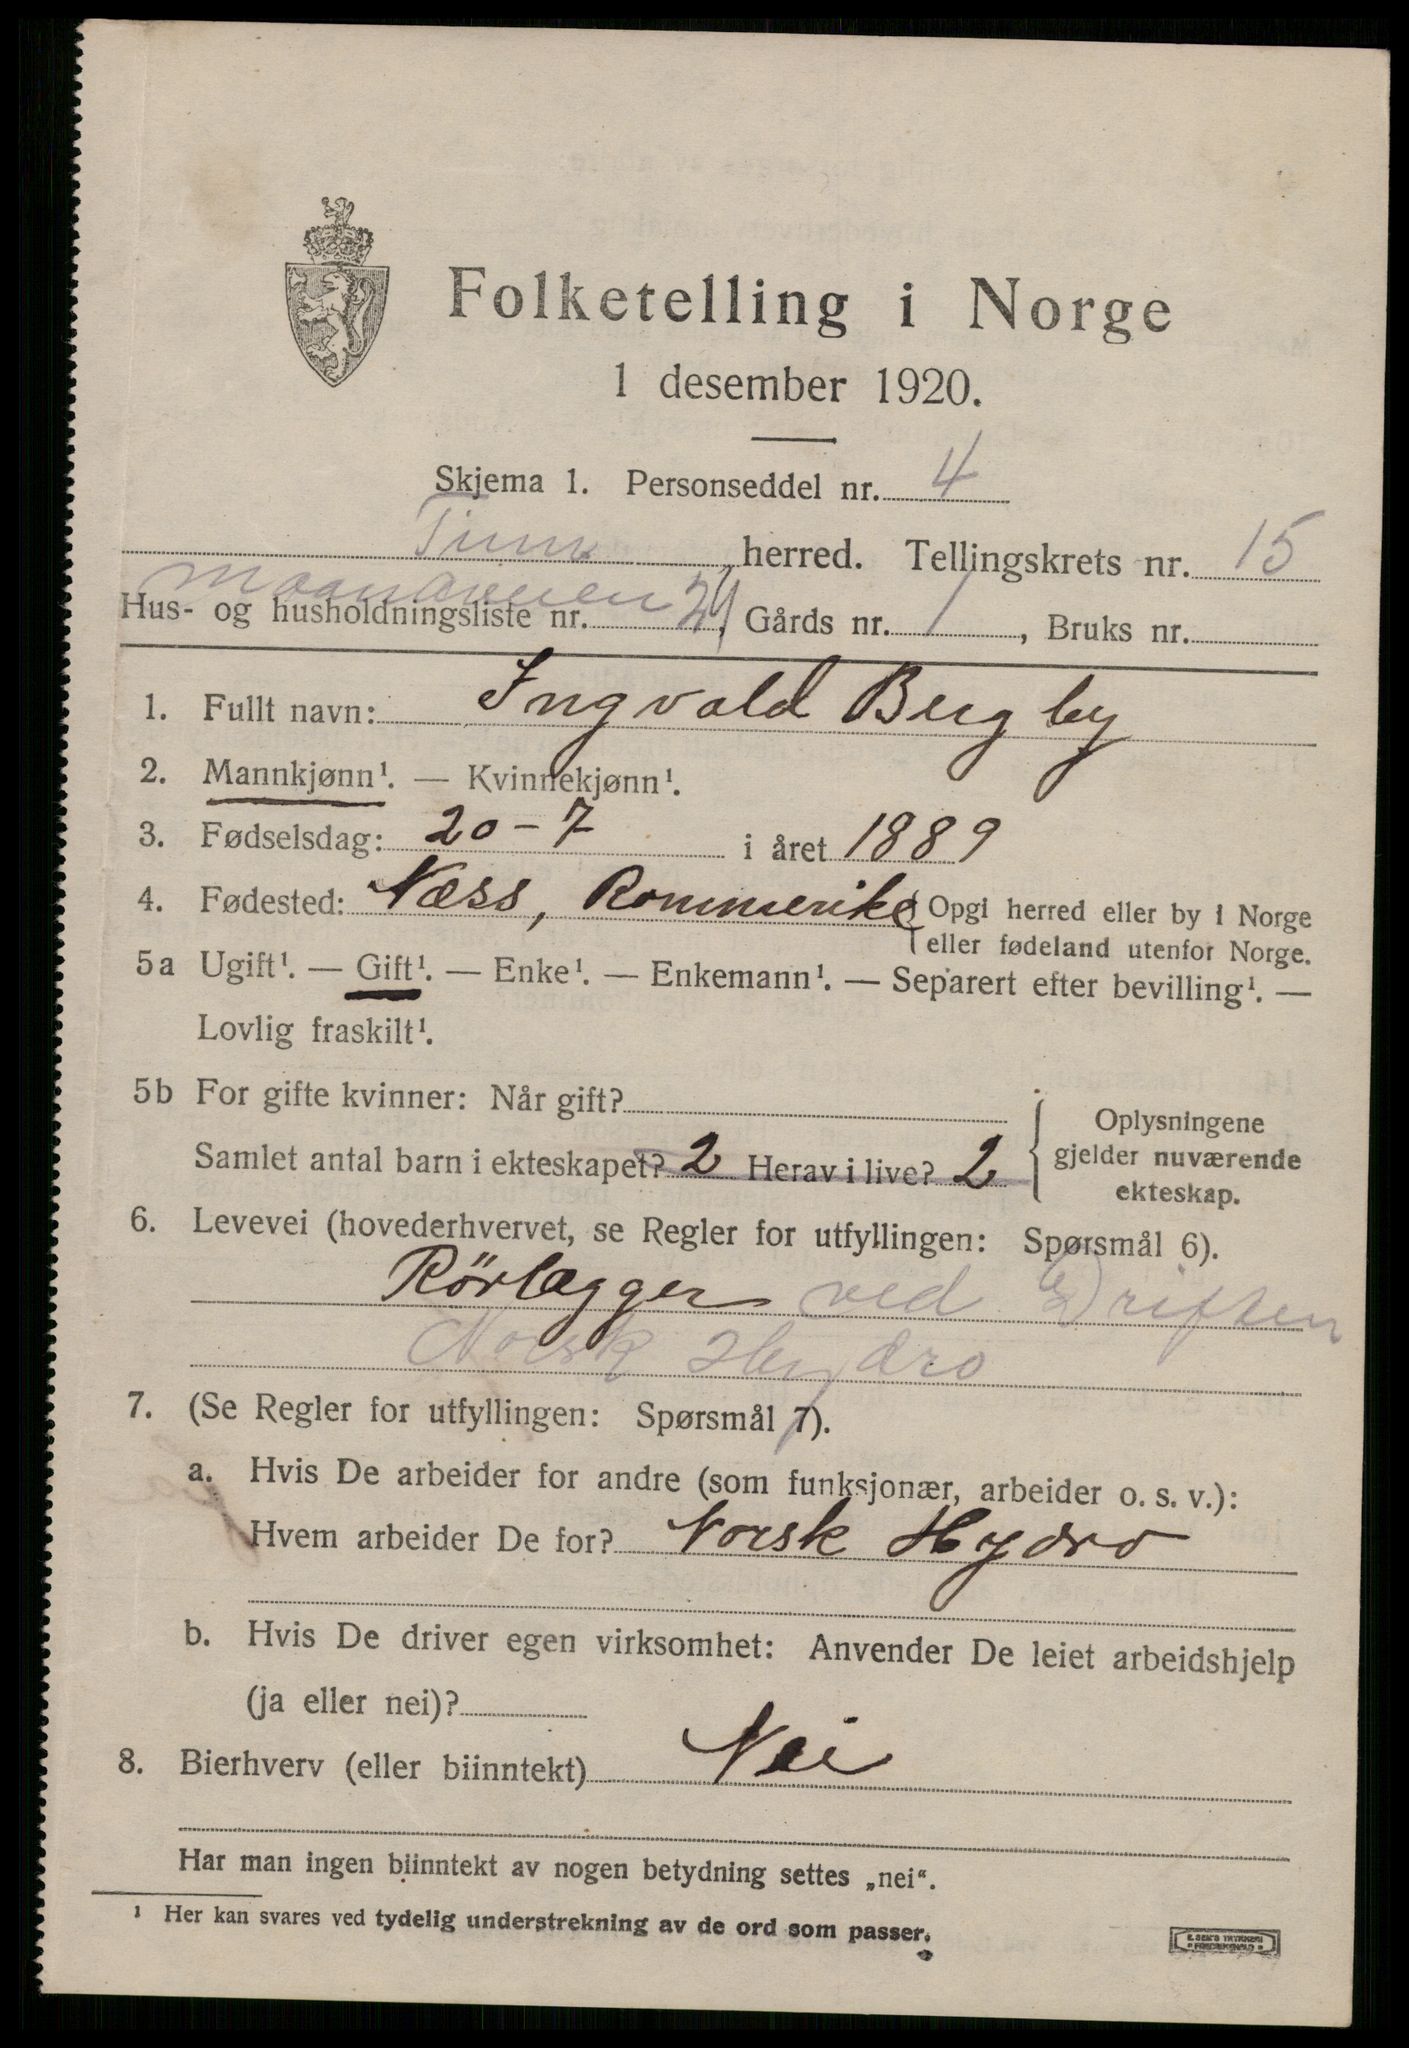 Folketelling i Norge
1 desember 1920.
Skjema 1. Personseddel nr. 4
Tinn herred. Tellingskrets nr. 15
Hus- og husholdningsliste nr. 24, Gårds nr. 1, Bruks nr.
1. Fullt navn: Ingvald Bergby
2. Mannkjønn¹. — Kvinnekjønn¹.
3. Fødselsdag: 20-7 i året 1889
4. Fødested: Næss, Rommerike { Opgi herred eller by i Norge
eller fødeland utenfor Norge.
5a Ugift¹. — Gift¹. — Enke¹. — Enkemann¹. — Separert efter bevilling¹. —
Lovlig fraskilt¹.
5b For gifte kvinner: Når gift?
Samlet antal barn i ekteskapet? 2 Herav i live? 2
Oplysningene
gjelder nuværende
ekteskap.
6. Levevei (hovederhvervet, se Regler for utfyllingen: Spørsmål 6).
Rörlægger ved Driften
Norsk Hydro
7. (Se Regler for utfyllingen: Spørsmål 7).
a. Hvis De arbeider for andre (som funksjonær, arbeider o. s. v.):
Hvem arbeider De for? Norsk Hydro
b. Hvis De driver egen virksomhet: Anvender De leiet arbeidshjelp
(ja eller nei)?
8. Bierhverv (eller biinntekt) Nei
Har man ingen biinntekt av nogen betydning settes „nei“.
¹ Her kan svares ved tydelig understrekning av de ord som passer.